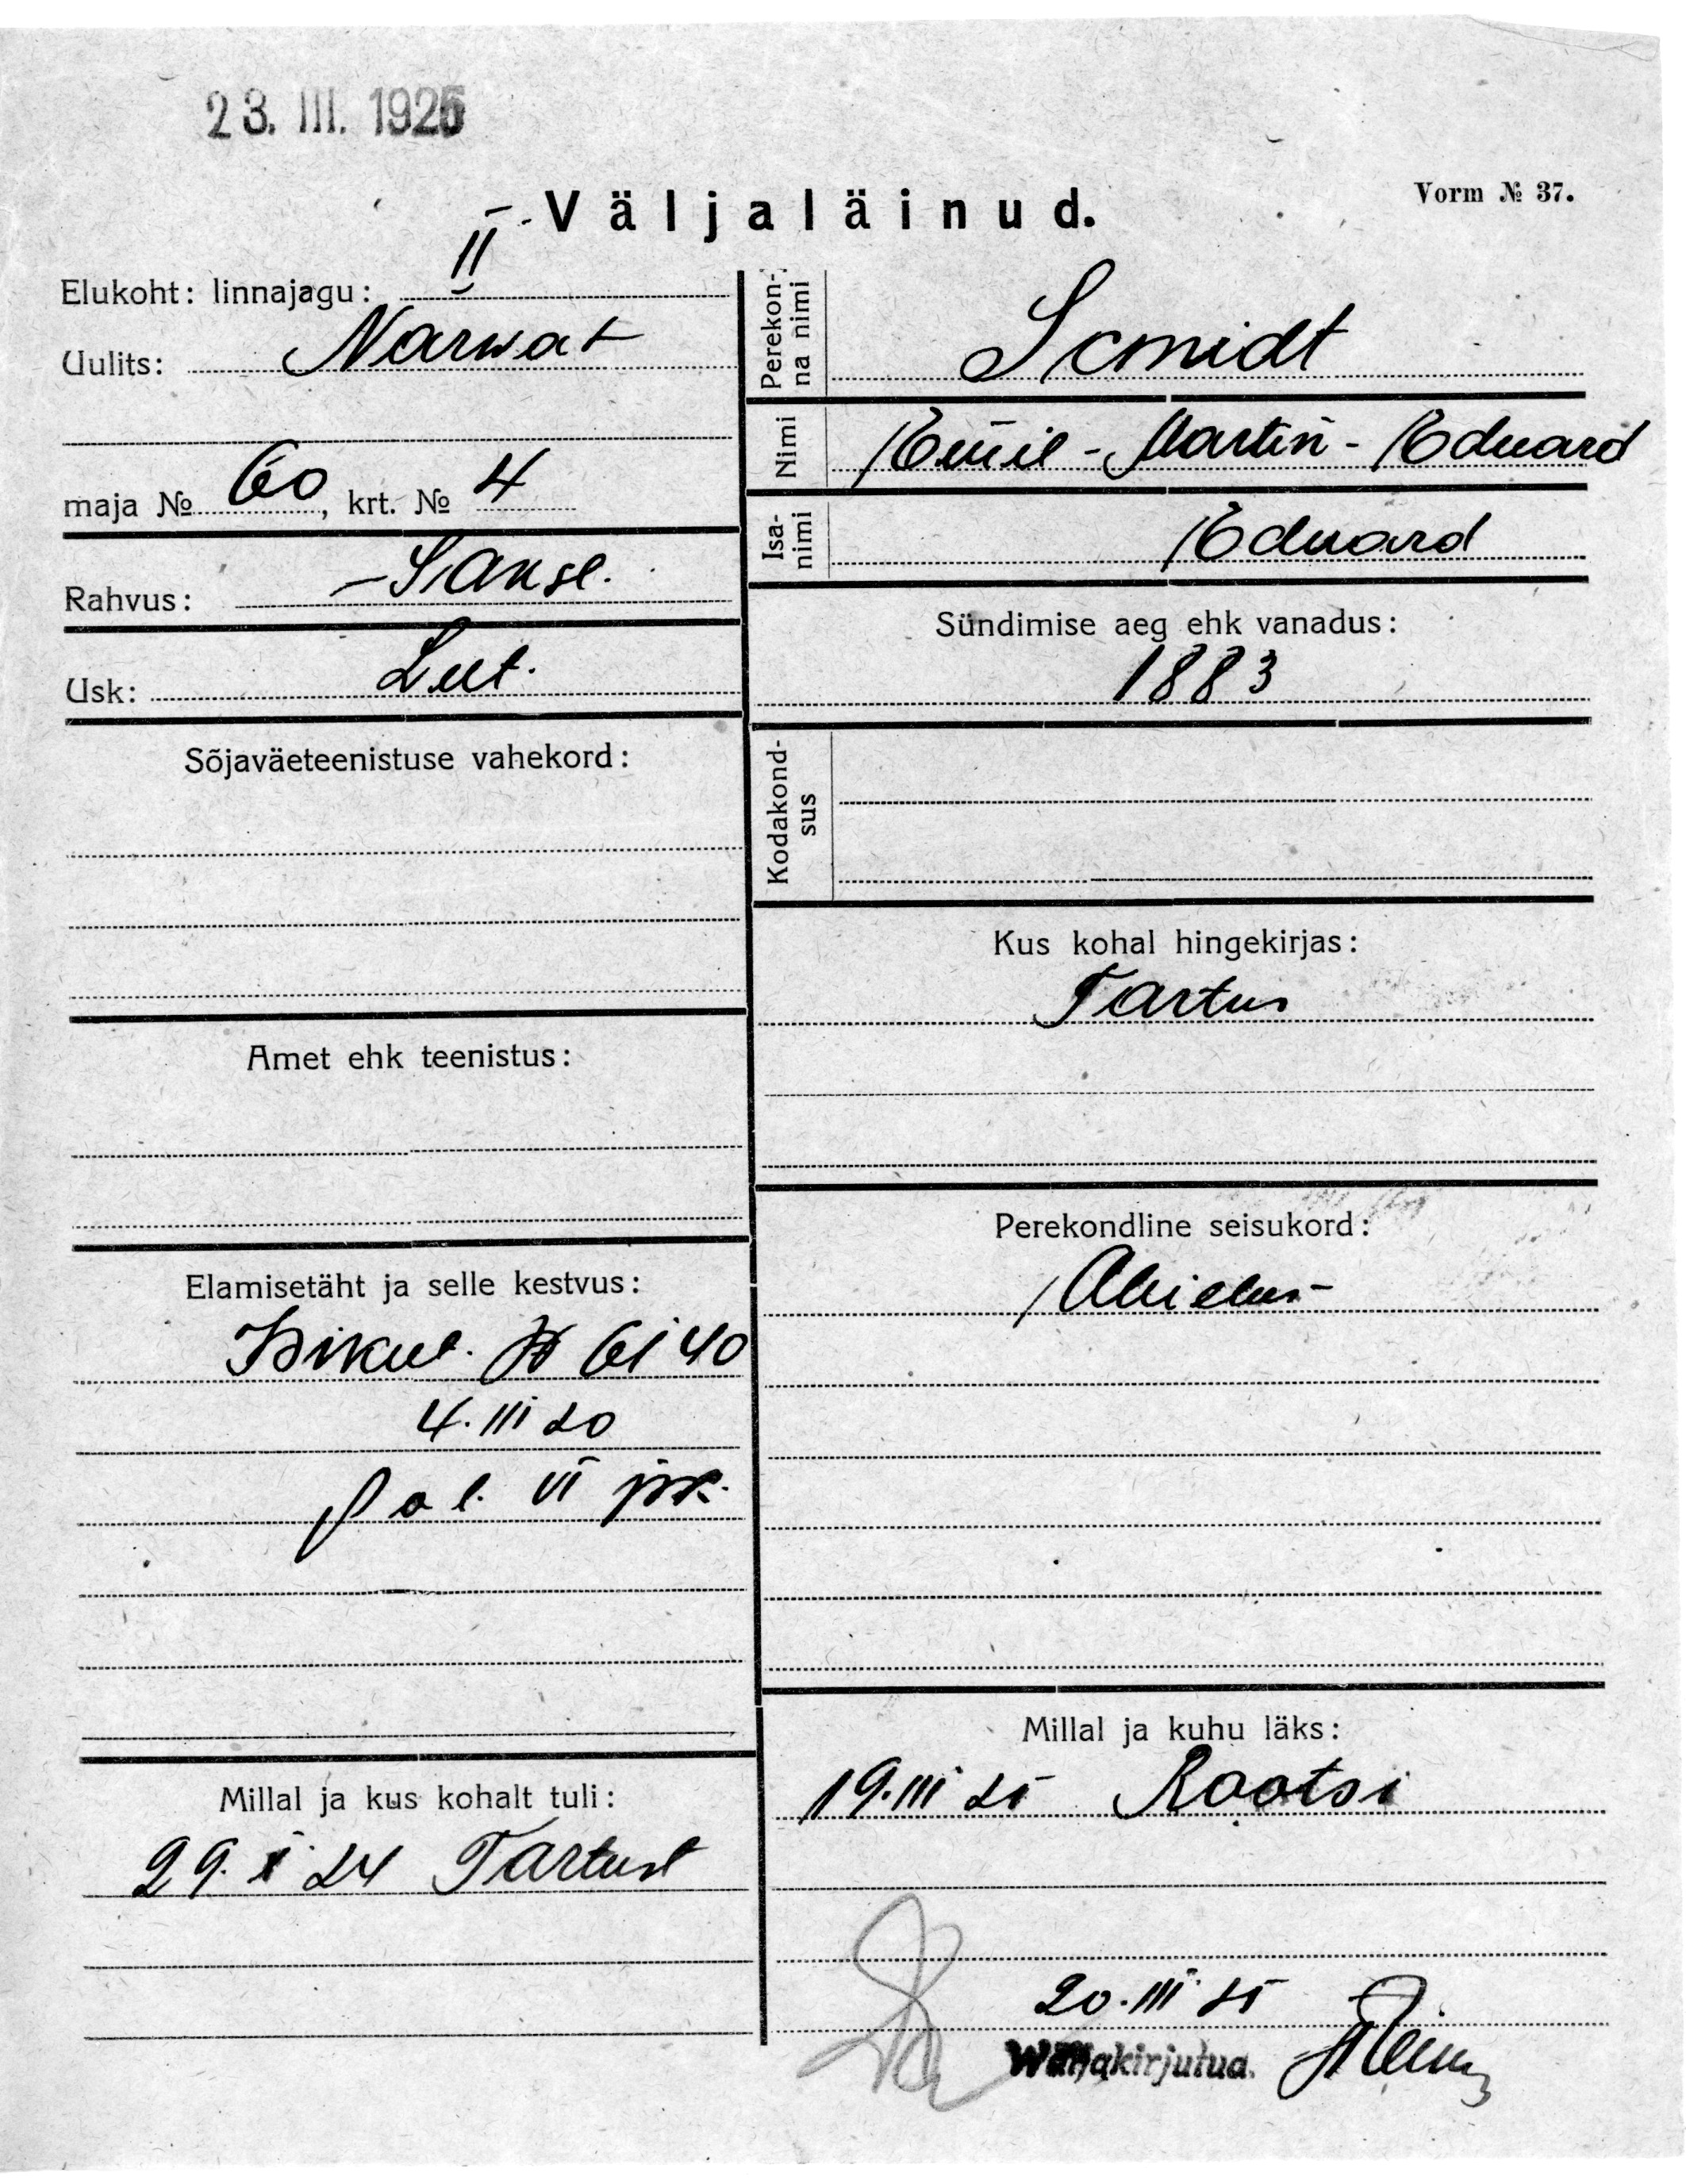 23. III. 1925
Vorm № 37.
Väljaläinud.
Elukoht: linnajagu: II
Uulits: Narwa t
maja № 60, krt. № 4
Rahvus: Saksl.
Usk: Lut.
Sõjaväeteenistuse vahekord:
Amet ehk teenistus:
Elamisetäht ja selle kestvus:
Isikut. № 6140
4. III 20
Pol. VI jsk.
Millal ja kus kohalt tuli:
29. I 24 Tartust
Perekonna nimi
Scmidt
Nimi
Emil-Martin-Eduard
Isanimi
Eduard
Sündimise aeg ehk vanadus:
1883
Kodakondsus
Kus kohal hingekirjas:
Tartus
Perekondline seisukord:
Abielus
Millal ja kuhu läks:
19. III 25 Rootsi
20. III 25
Wäljakirjutud.